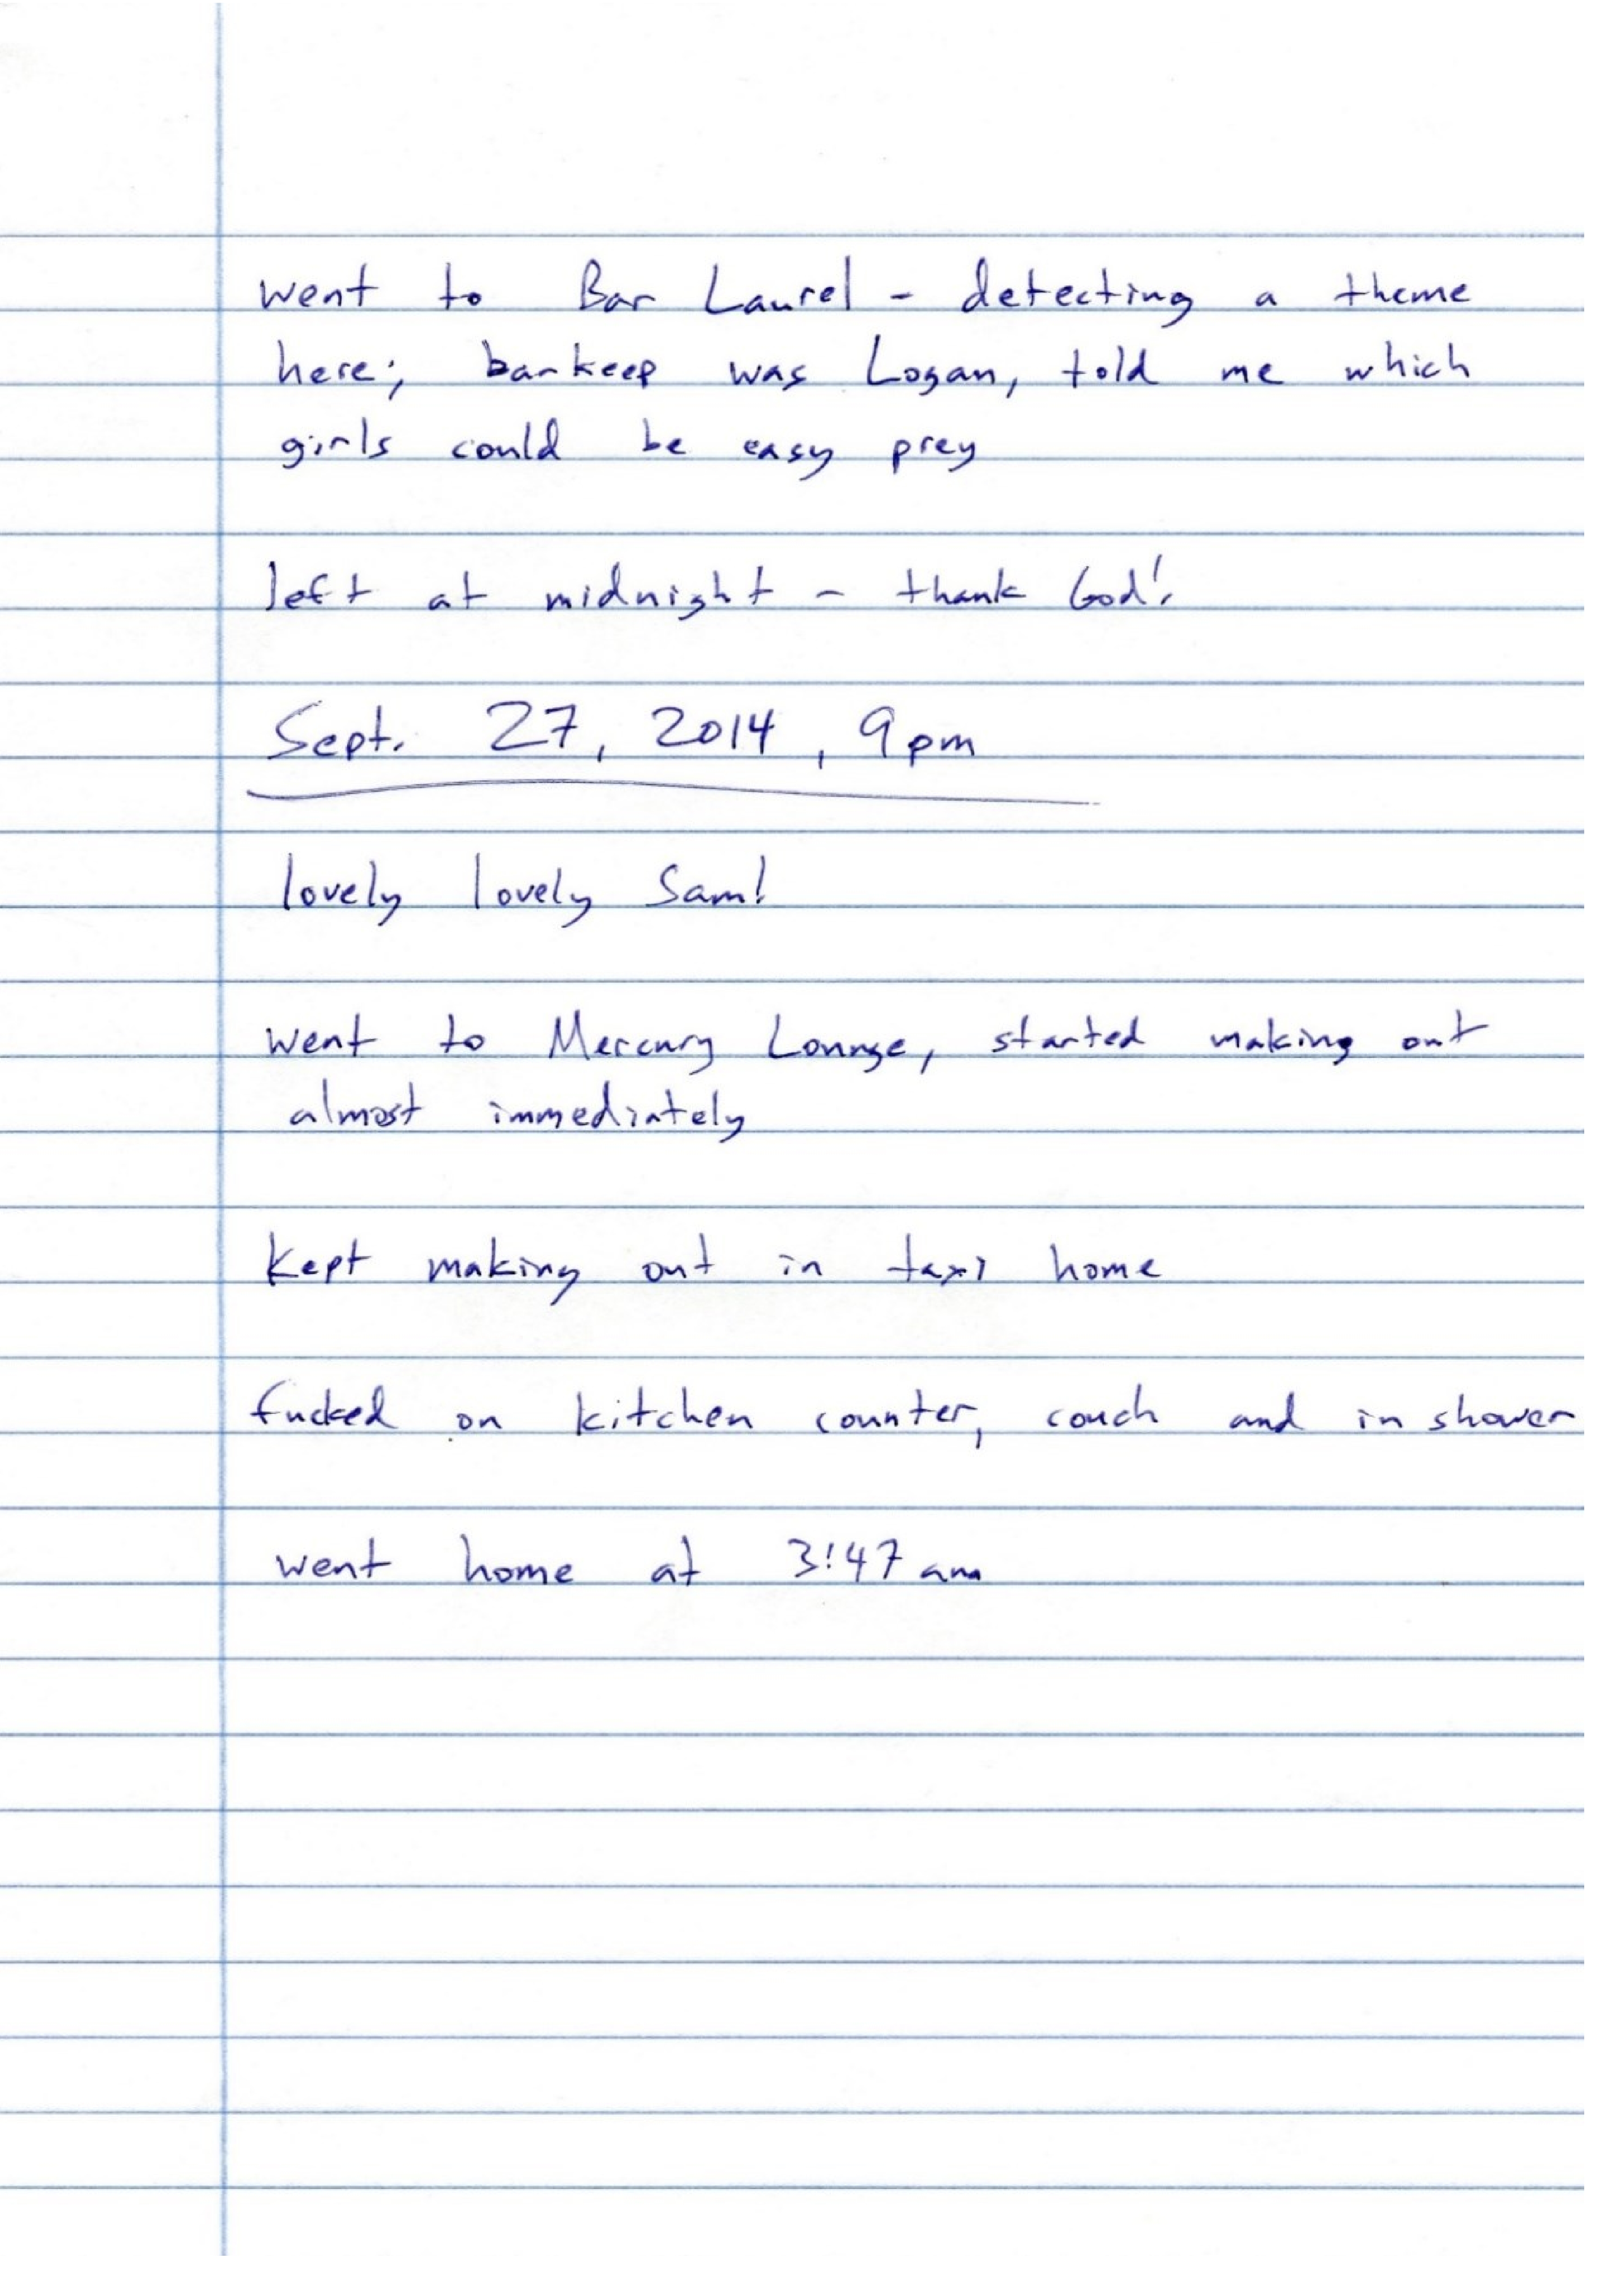 went to Bar Laurel - detecting a theme
here; barkeep was Logan, told me which
girls could be easy prey
left at midnight - thank God!
Sept. 27, 2014, 9pm
lovely lovely Sam!
went to Mercury Lounge, started making out
almost immediately
kept making out in taxi home
fucked on kitchen counter, couch and in shower
went home at 3:47 am